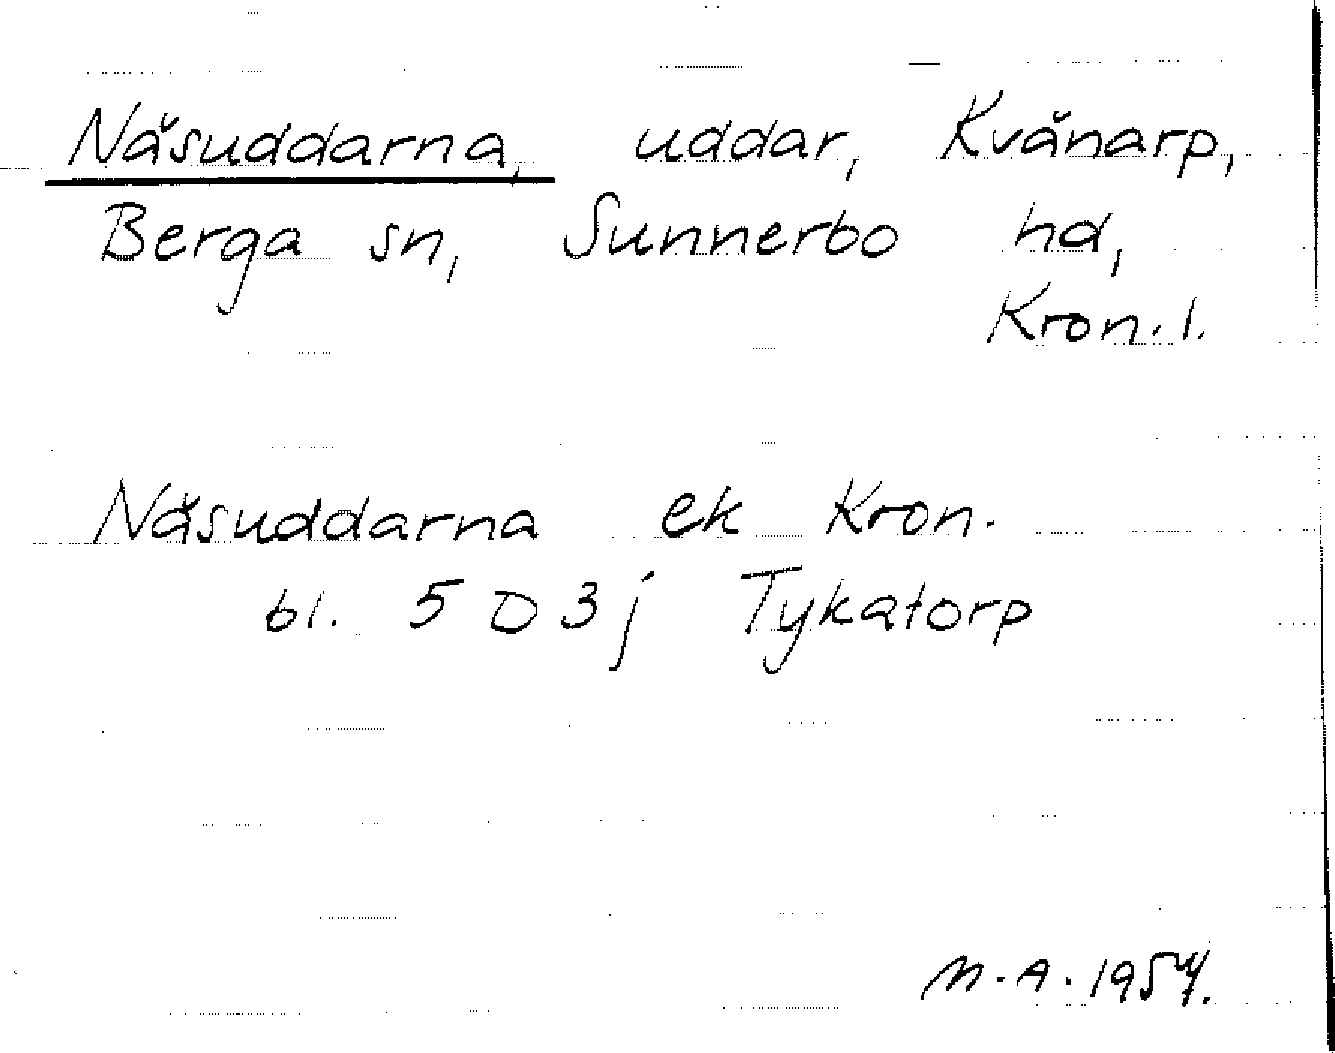 Näsuddarna, uddar, Kvänarp,
Berga sn, Sunnerbo hd,
Kron. l.
Näsuddarna ek Kron.
bl. 5 D 3j Tykatorp
M. A. 1954.